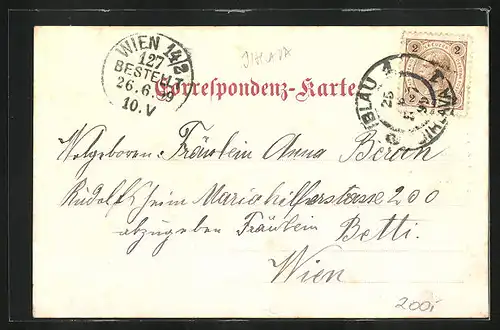 WIEN 14/2
127
BESTELLT
26.6.99
10.V
JIHLAVA
Correspondenz-Karte
2 2
IGLAU 1
JIHLAVA 1
Wolgeboren: Fräulein Anna Beran
Rudolfsheim Mariahilferstasse 200
abzugeben Fräulein Betti.
Wien
200,-